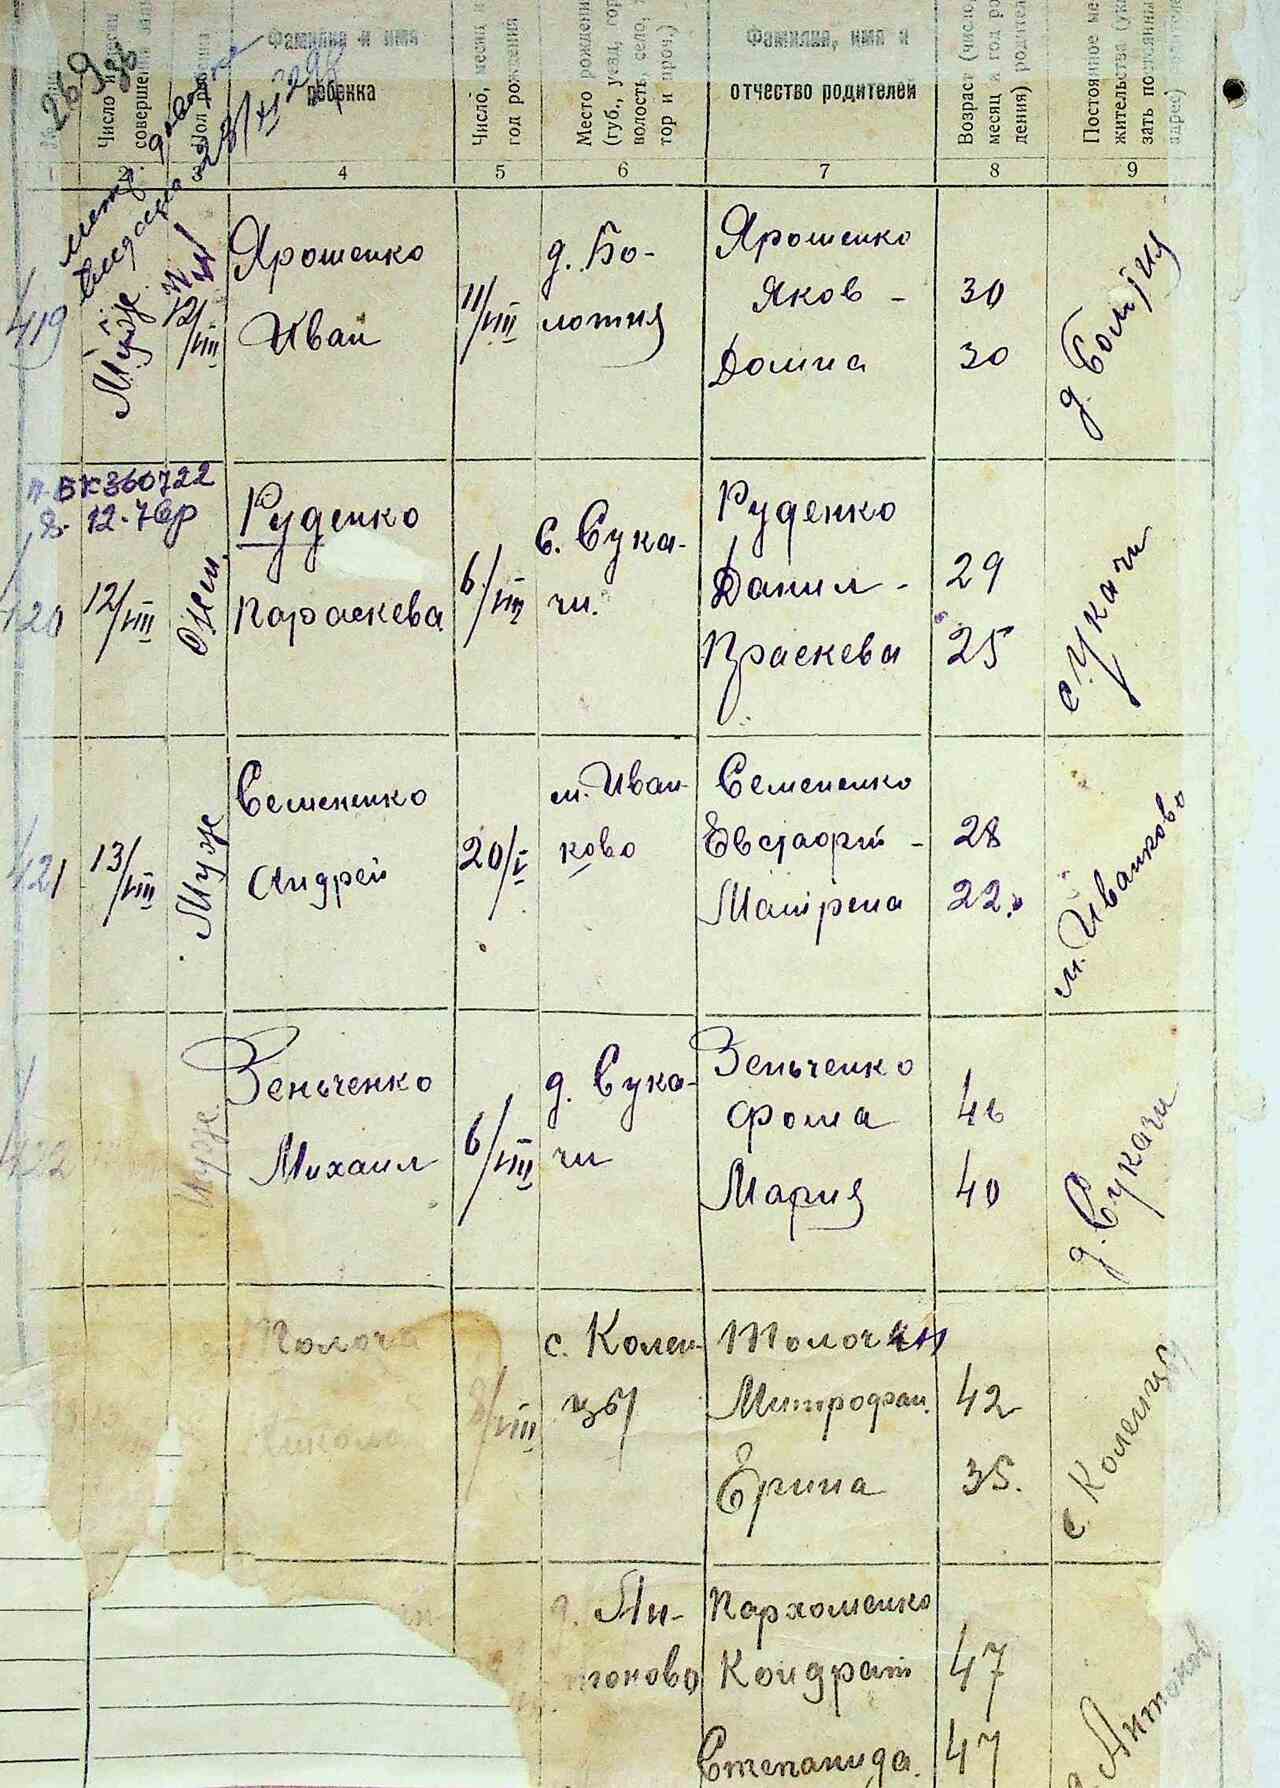 269 зв
Число и
совершения
Пол ребенка
Фамилия и имя
ребенка
Число, месяц и
год рождения
Место рождения
(губ., уезд, гор
волость, село,
тор и проч.)
Фамилия, имя и
отчество родителей
Возраст (число,
месяц и год ро
дения) родител
Постоянное ме
жительства (ука
зать постоянны
адрес)
2 3 4 5 6 7 8 9
419
Муж.
12/VIII
Ярошенко
Иван
11/VIII
д. Бо-
лотня
Ярошенко
Яков - 30
Домна 30
п. БК 360722
12.
420
12/VIII
Жен.
Руденко
Параскева
6/VIII
с. Сука-
чи.
Руденко
Данил - 29
Праскева 25
с. Сукачи
421
13/VIII
Муж
Семененко
Андрей
20/V
м. Иван-
ково
Семененко
Евстафий - 28
Матрена 22.
м. Иванково
422
Муж.
Зеньченко
Михаил
6/VIII
д. Сука-
чи
Зеньченко
Фома 46
Мария 40
д. Сукачи
Толоч
Никола
/VIII
с. Колен-
цы
Толочин
Митрофан. 42
Ерина 35.
с. Коленцы
д. Ан-
тоново
Пархоменко
Кондрат 47
Степанида. 47
Антонов